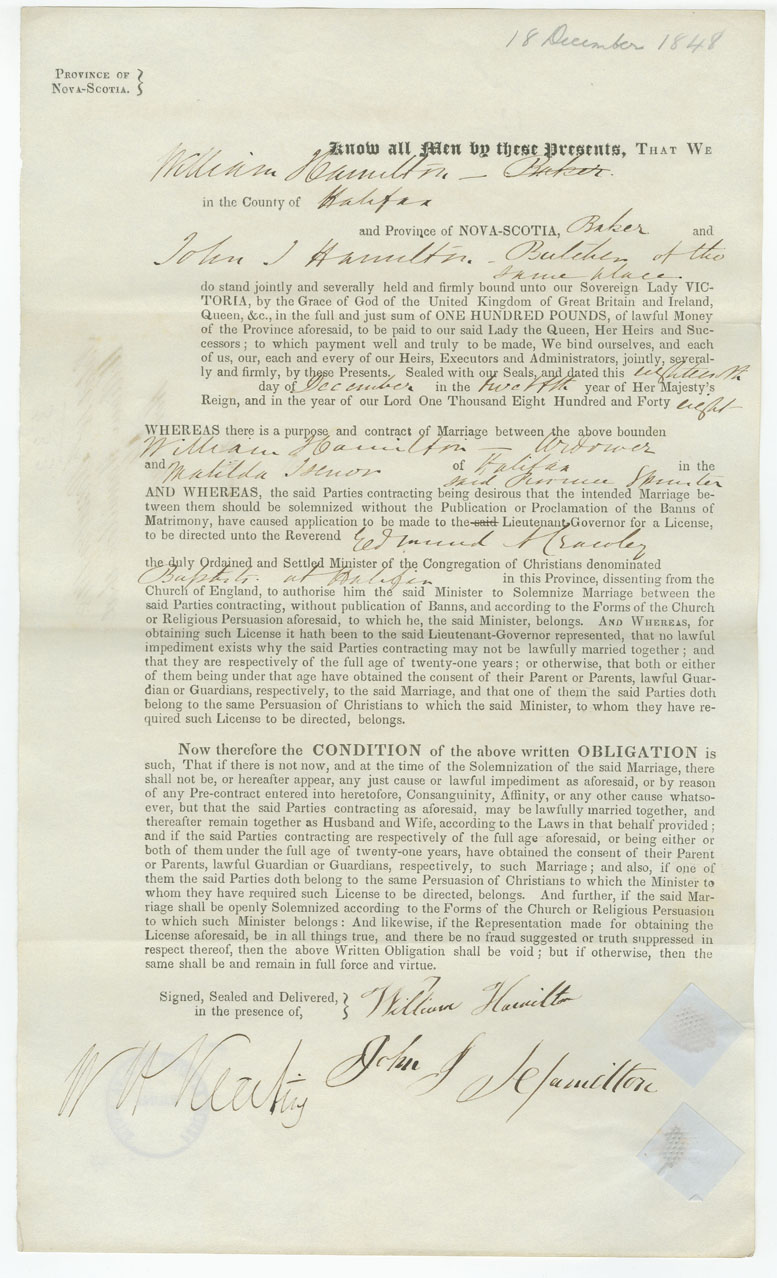 18 December 1848
PROVINCE OF
NOVA-SCOTIA.
Know all Men by these Presents, THAT WE
William Hamilton — Baker
in the County of Halifax
and Province of NOVA-SCOTIA, Baker and
John J Hamilton - Butcher of the
same place
do stand jointly and severally held and firmly bound unto our Sovereign Lady VIC-
TORIA, by the Grace of God of the United Kingdom of Great Britain and Ireland,
Queen, &c., in the full and just sum of ONE HUNDRED POUNDS, of lawful Money
of the Province aforesaid, to be paid to our said Lady the Queen, Her Heirs and Suc-
cessors; to which payment well and truly to be made, We bind ourselves, and each
of us, our, each and every of our Heirs, Executors and Administrators, jointly, several-
ly and firmly, by these Presents. Sealed with our Seals, and dated this eighteenth
day of December in the twelfth year of Her Majesty's
Reign, and in the year of our Lord One Thousand Eight Hundred and Forty eight
WHEREAS there is a purpose and contract of Marriage between the above bounden
William Hamilton — Widower
and Matilda Isenor of Halifax in the
said Province Spinster
AND WHEREAS, the said Parties contracting being desirous that the intended Marriage be-
tween them should be solemnized without the Publication or Proclamation of the Banns of
Matrimony, have caused application to be made to the said Lieutenant-Governor for a License,
to be directed unto the Reverend Edmund A Crawley
the duly Ordained and Settled Minister of the Congregation of Christians denominated
Baptists at Halifax in this Province, dissenting from the
Church of England, to authorise him the said Minister to Solemnize Marriage between the
said Parties contracting, without publication of Banns, and according to the Forms of the Church
or Religious Persuasion aforesaid, to which he, the said Minister, belongs. AND WHEREAS, for
obtaining such License it hath been to the said Lieutenant-Governor represented, that no lawful
impediment exists why the said Parties contracting may not be lawfully married together; and
that they are respectively of the full age of twenty-one years; or otherwise, that both or either
of them being under that age have obtained the consent of their Parent or Parents, lawful Guar-
dian or Guardians, respectively, to the said Marriage, and that one of them the said Parties doth
belong to the same Persuasion of Christians to which the said Minister, to whom they have re-
quired such License to be directed, belongs.
Now therefore the CONDITION of the above written OBLIGATION is
such, That if there is not now, and at the time of the Solemnization of the said Marriage, there
shall not be, or hereafter appear, any just cause or lawful impediment as aforesaid, or by reason
of any Pre-contract entered into heretofore, Consanguinity, Affinity, or any other cause whatso-
ever, but that the said Parties contracting as aforesaid, may be lawfully married together, and
thereafter remain together as Husband and Wife, according to the Laws in that behalf provided;
and if the said Parties contracting are respectively of the full age aforesaid, or being either or
both of them under the full age of twenty-one years, have obtained the consent of their Parent
or Parents, lawful Guardian or Guardians, respectively, to such Marriage; and also, if one of
them the said Parties doth belong to the same Persuasion of Christians to which the Minister to
whom they have required such License to be directed, belongs. And further, if the said Mar-
riage shall be openly Solemnized according to the Forms of the Church or Religious Persuasion
to which such Minister belongs: And likewise, if the Representation made for obtaining the
License aforesaid, be in all things true, and there be no fraud suggested or truth suppressed in
respect thereof, then the above Written Obligation shall be void; but if otherwise, then the
same shall be and remain in full force and virtue.
Signed, Sealed and Delivered,
in the presence of,
William Hamilton
John J Hamilton
W H Keating